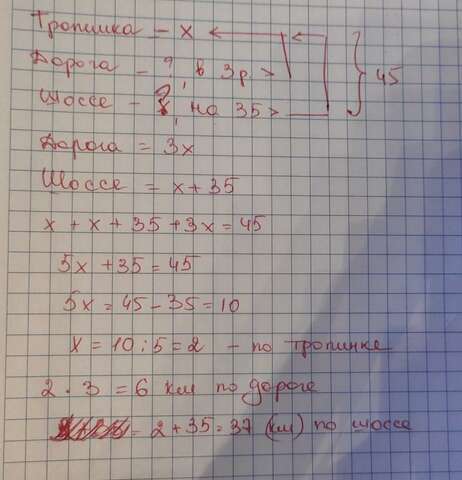 Тропинка – x
Дорога – ?, в 3 р. >
Шоссе – ?, на 35 >
45
Дорога = 3x
Шоссе = x + 35
x + x + 35 + 3x = 45
5x + 35 = 45
5x = 45 – 35 = 10
x = 10 : 5 = 2 – по тропинке
2 · 3 = 6 км по дороге
= 2 + 35 = 37 (км) по шоссе